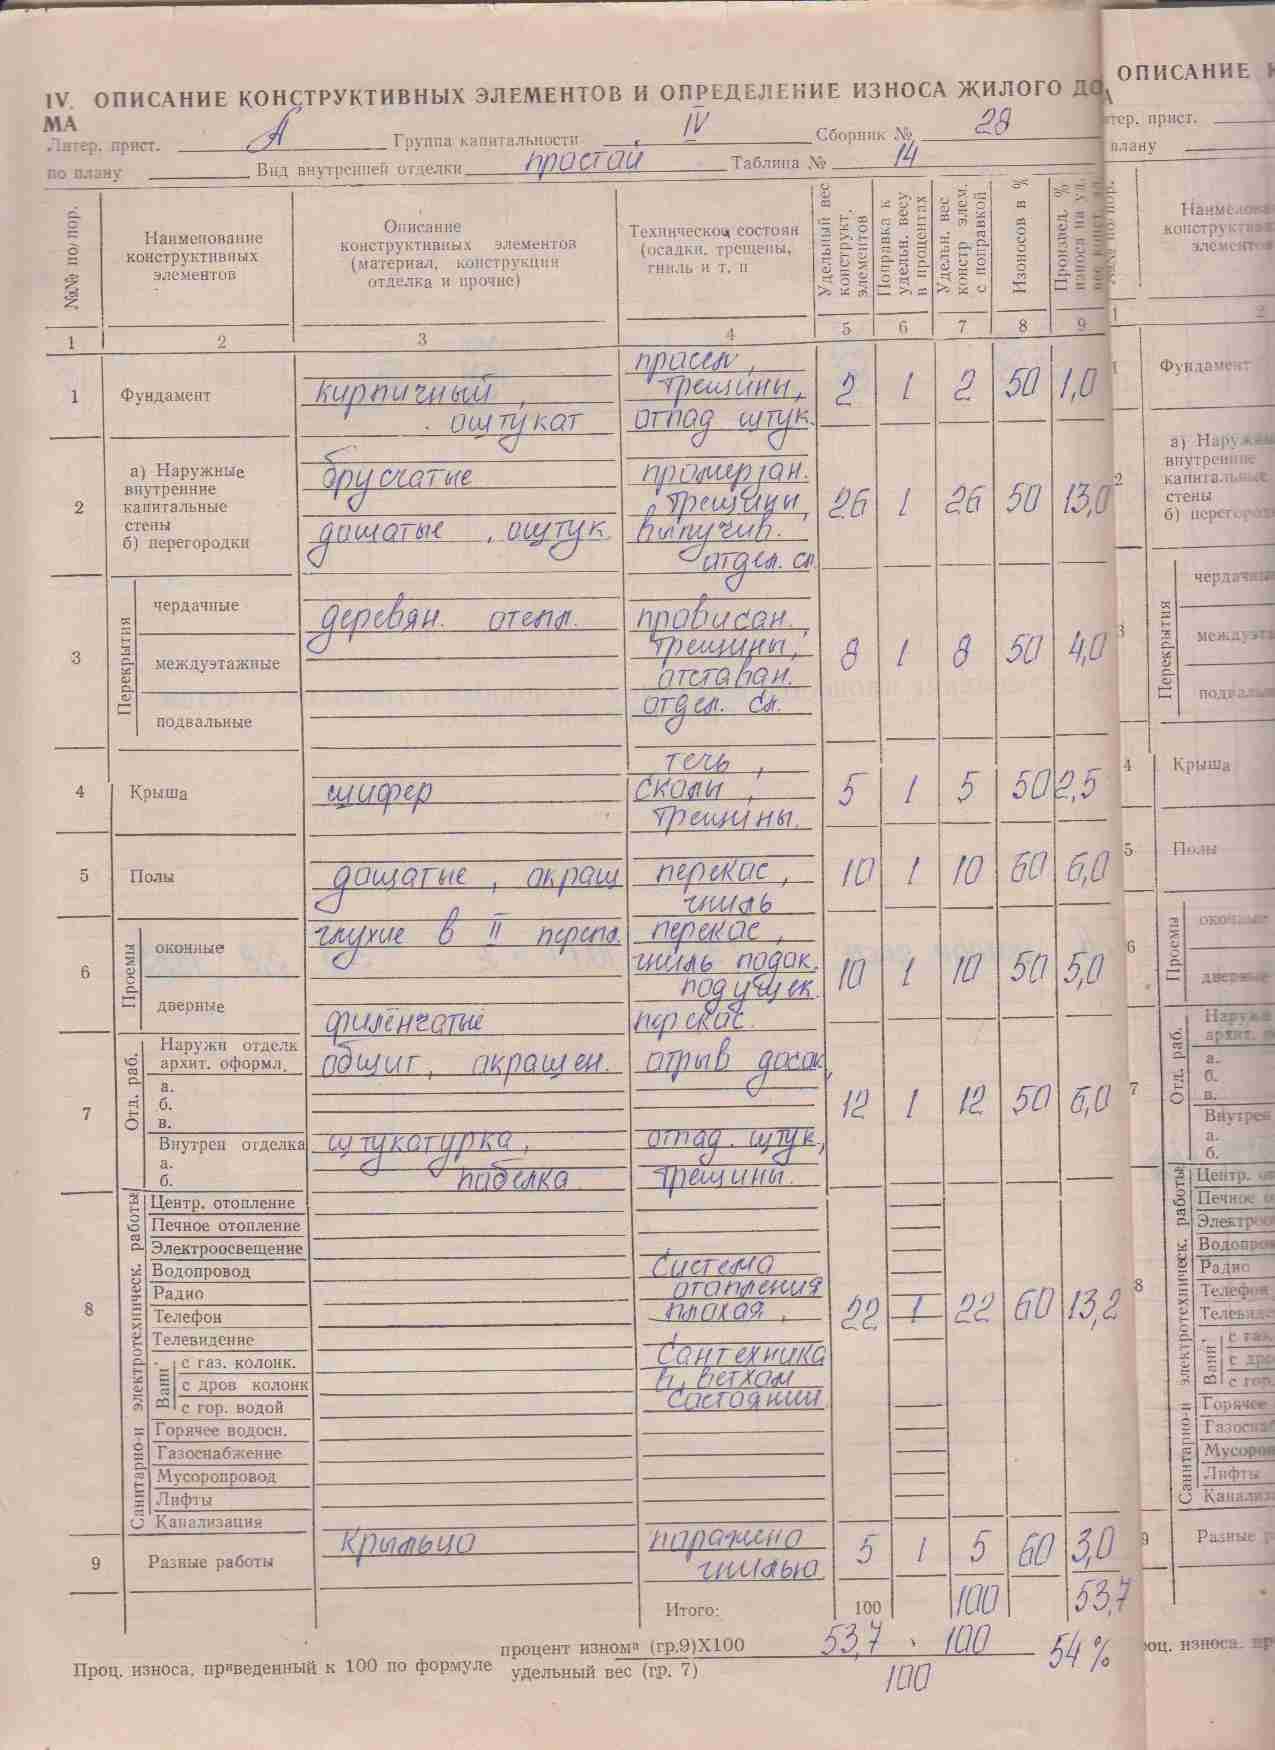 IV. ОПИСАНИЕ КОНСТРУКТИВНЫХ ЭЛЕМЕНТОВ И ОПРЕДЕЛЕНИЕ ИЗНОСА ЖИЛОГО ДО
МА
Литер. прист. А Группа капитальности IV Сборник № 28
по плану Вид внутренней отделки простай Таблина № 14
№№ по/пор. Наименование конструктивных элементов Описание конструктивных элементов (материал, конструкция отделка и прочие) Техническое состоян (осадки, трещены, гниль и т, п Удельный вес конструкт. элементов Поправка к удельн. весу в процентах Удельн. вес констр элем. с поправкой Изоносов в % Произвед. % износа на уд.
1 2 3 4 5 6 7 8 9
просел,
1 Фундамент кирпичный, трещины, 2 1 2 50 1,0
оштукат отпад штук.
2 а) Наружные внутренние капитальные стены брусчатые промерзан. трещины, 26 1 26 50 13,0
б) перегородки дощатые, оштук. выпучив. отдел. сл.
3 Перекрытия чердачные деревян. отепл. провисан. трещины, 8 1 8 50 4,0
междуэтажные отставан.
подвальные отдел. сл.
течь,
4 Крыша шифер сколы, 5 1 5 50 2,5
трещины.
5 Полы дощатые, окраш перекос, 10 1 10 60 6,0
гниль
6 Проемы оконные глухие в II перепл. перекос, гниль подок. подушек. 10 1 10 50 5,0
дверные филёнчатые перекос.
7 Отд. раб. Наружн отделк архит. оформл. обшит, окрашен. отрыв досок, 12 1 12 50 6,0
а.
б.
в.
Внутрен отделка штукатурка, отпад. штук,
а.
б. побелка трещины.
8 Санитарно-и электротехническ. работы Центр. отопление
Печное отопление
Электроосвещение
Водопровод система
Радио отопления
Телефон плохая, 22 1 22 60 13,2
Телевидение
Ванн с газ. колонк. Сантехника
с дров колонк в ветхом
с гор. водой состоянии
Горячее водосн.
Газоснабжение
Мусоропровод
Лифты
Канализация
9 Разные работы Крыльцо поражено 5 1 5 60 3,0
гнилью
Итого: 100 100 53,7
Проц. износа, приведенный к 100 по формуле процент изном (гр.9)Х100 53,7 · 100 54 %
удельный вес (гр. 7) 100
ОПИСАНИЕ К
тер. прист.
плану
1 2
Фундамент
а) Наружны
внутренние
капитальные
стены
б) перегородк
Перекрытия
чердачны
междуэта
подваль
4 Крыша
5 Полы
6 Проемы
оконные
дверные
7 Отд. раб.
Наружн
архит.
а.
б.
в.
Внутрен
а.
б.
8 Санитарно-и электротехническ. работы
Центр. от
Печное о
Электроо
Водопров
Радио
Телефон
Телевиде
Ванн.
с газ.
с дро
с гор.
Горячее
Газоснаб
Мусоров
Лифты
Канализа
9 Разные р
роц. износа. пр